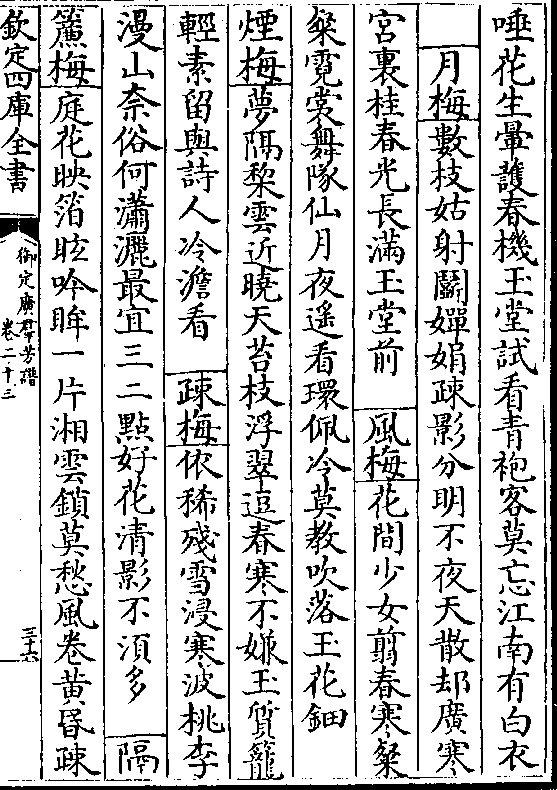 唾花生暈護春機玉堂試看青袍客莫忘江南有白衣
月梅數枝姑射鬬嬋娟疎影分明不夜天散却廣寒
宮裏桂春光長滿玉堂前　風梅花間少女翦春寒粲
粲霓裳舞隊仙月夜遥看環佩冷莫教吹落玉花鈿
煙梅夢隔棃雲近曉天苔枝浮翠逗春寒不嫌玉質籠
輕素留與詩人冷澹看　疎梅依稀殘雪浸寒波桃李
漫山奈俗何瀟灑最宜三二點好花清影不須多　隔
簾梅庭花映箔眩吟眸一片湘雲鎖莫愁風卷黄昏疎
欽定四庫全書
御定廣羣芳譜
卷二十三
三十六